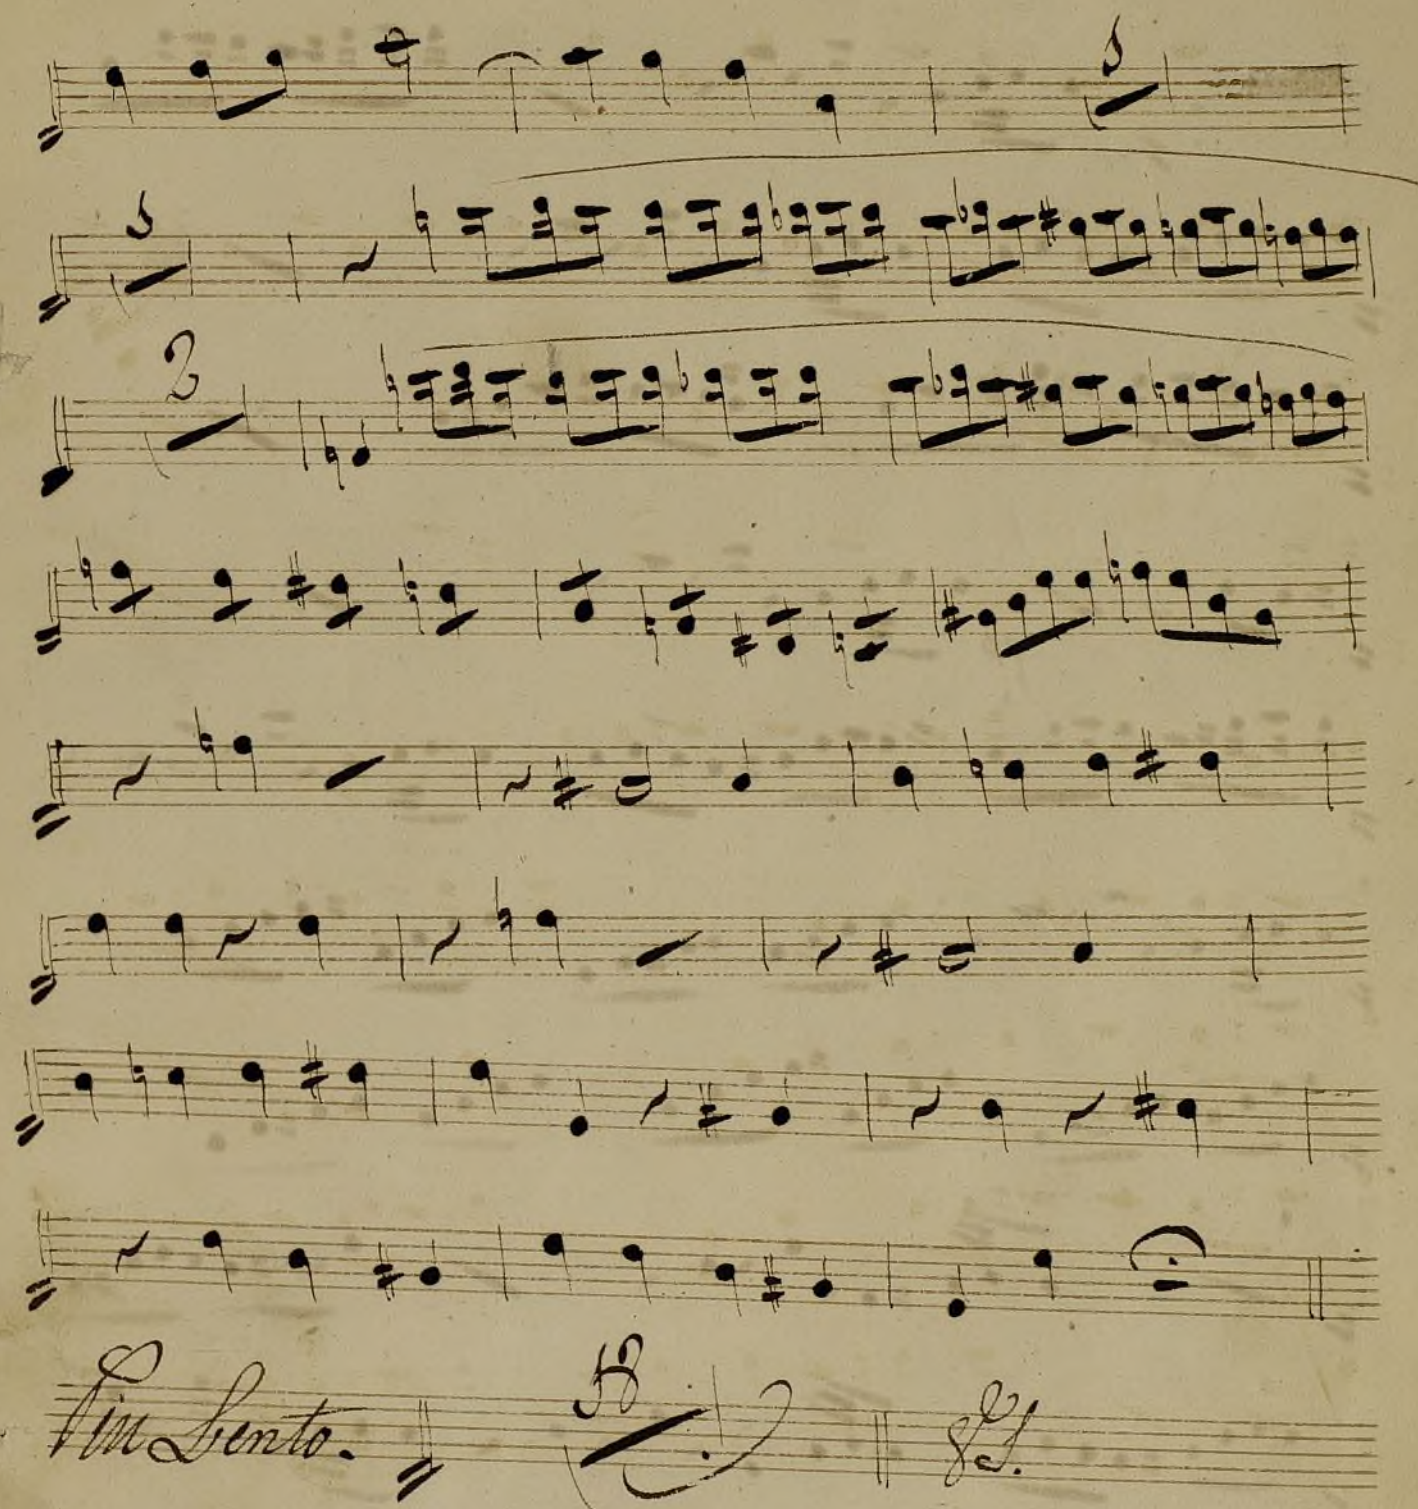 5
5
2
Piu Lento. 58 VS.